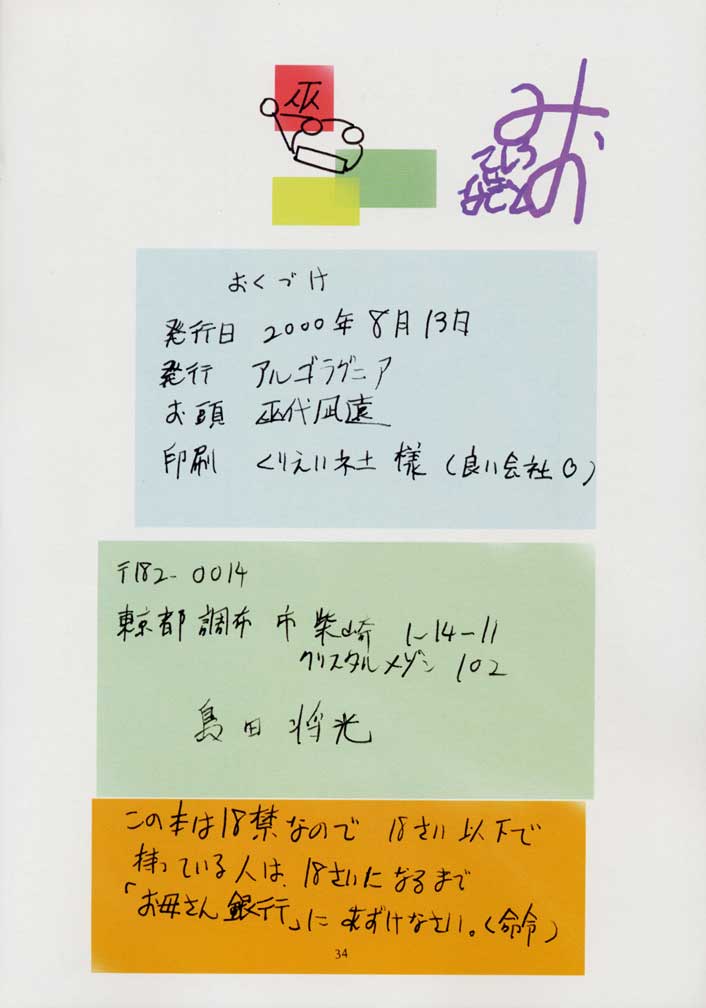 巫
みお
おくづけ
発行日 2000年8月13日
発行 アルゴラグニア
お頭 巫代凪遠
印刷 くりえい社 様 (良い会社 0)
〒182-0014
東京都調布市柴崎 1-14-11
クリスタルメゾン 102
島田将光
この本は18禁なので 18さい以下で
持っている人は、18さいになるまで
「お母さん銀行」にあずけなさい。(命令)
34